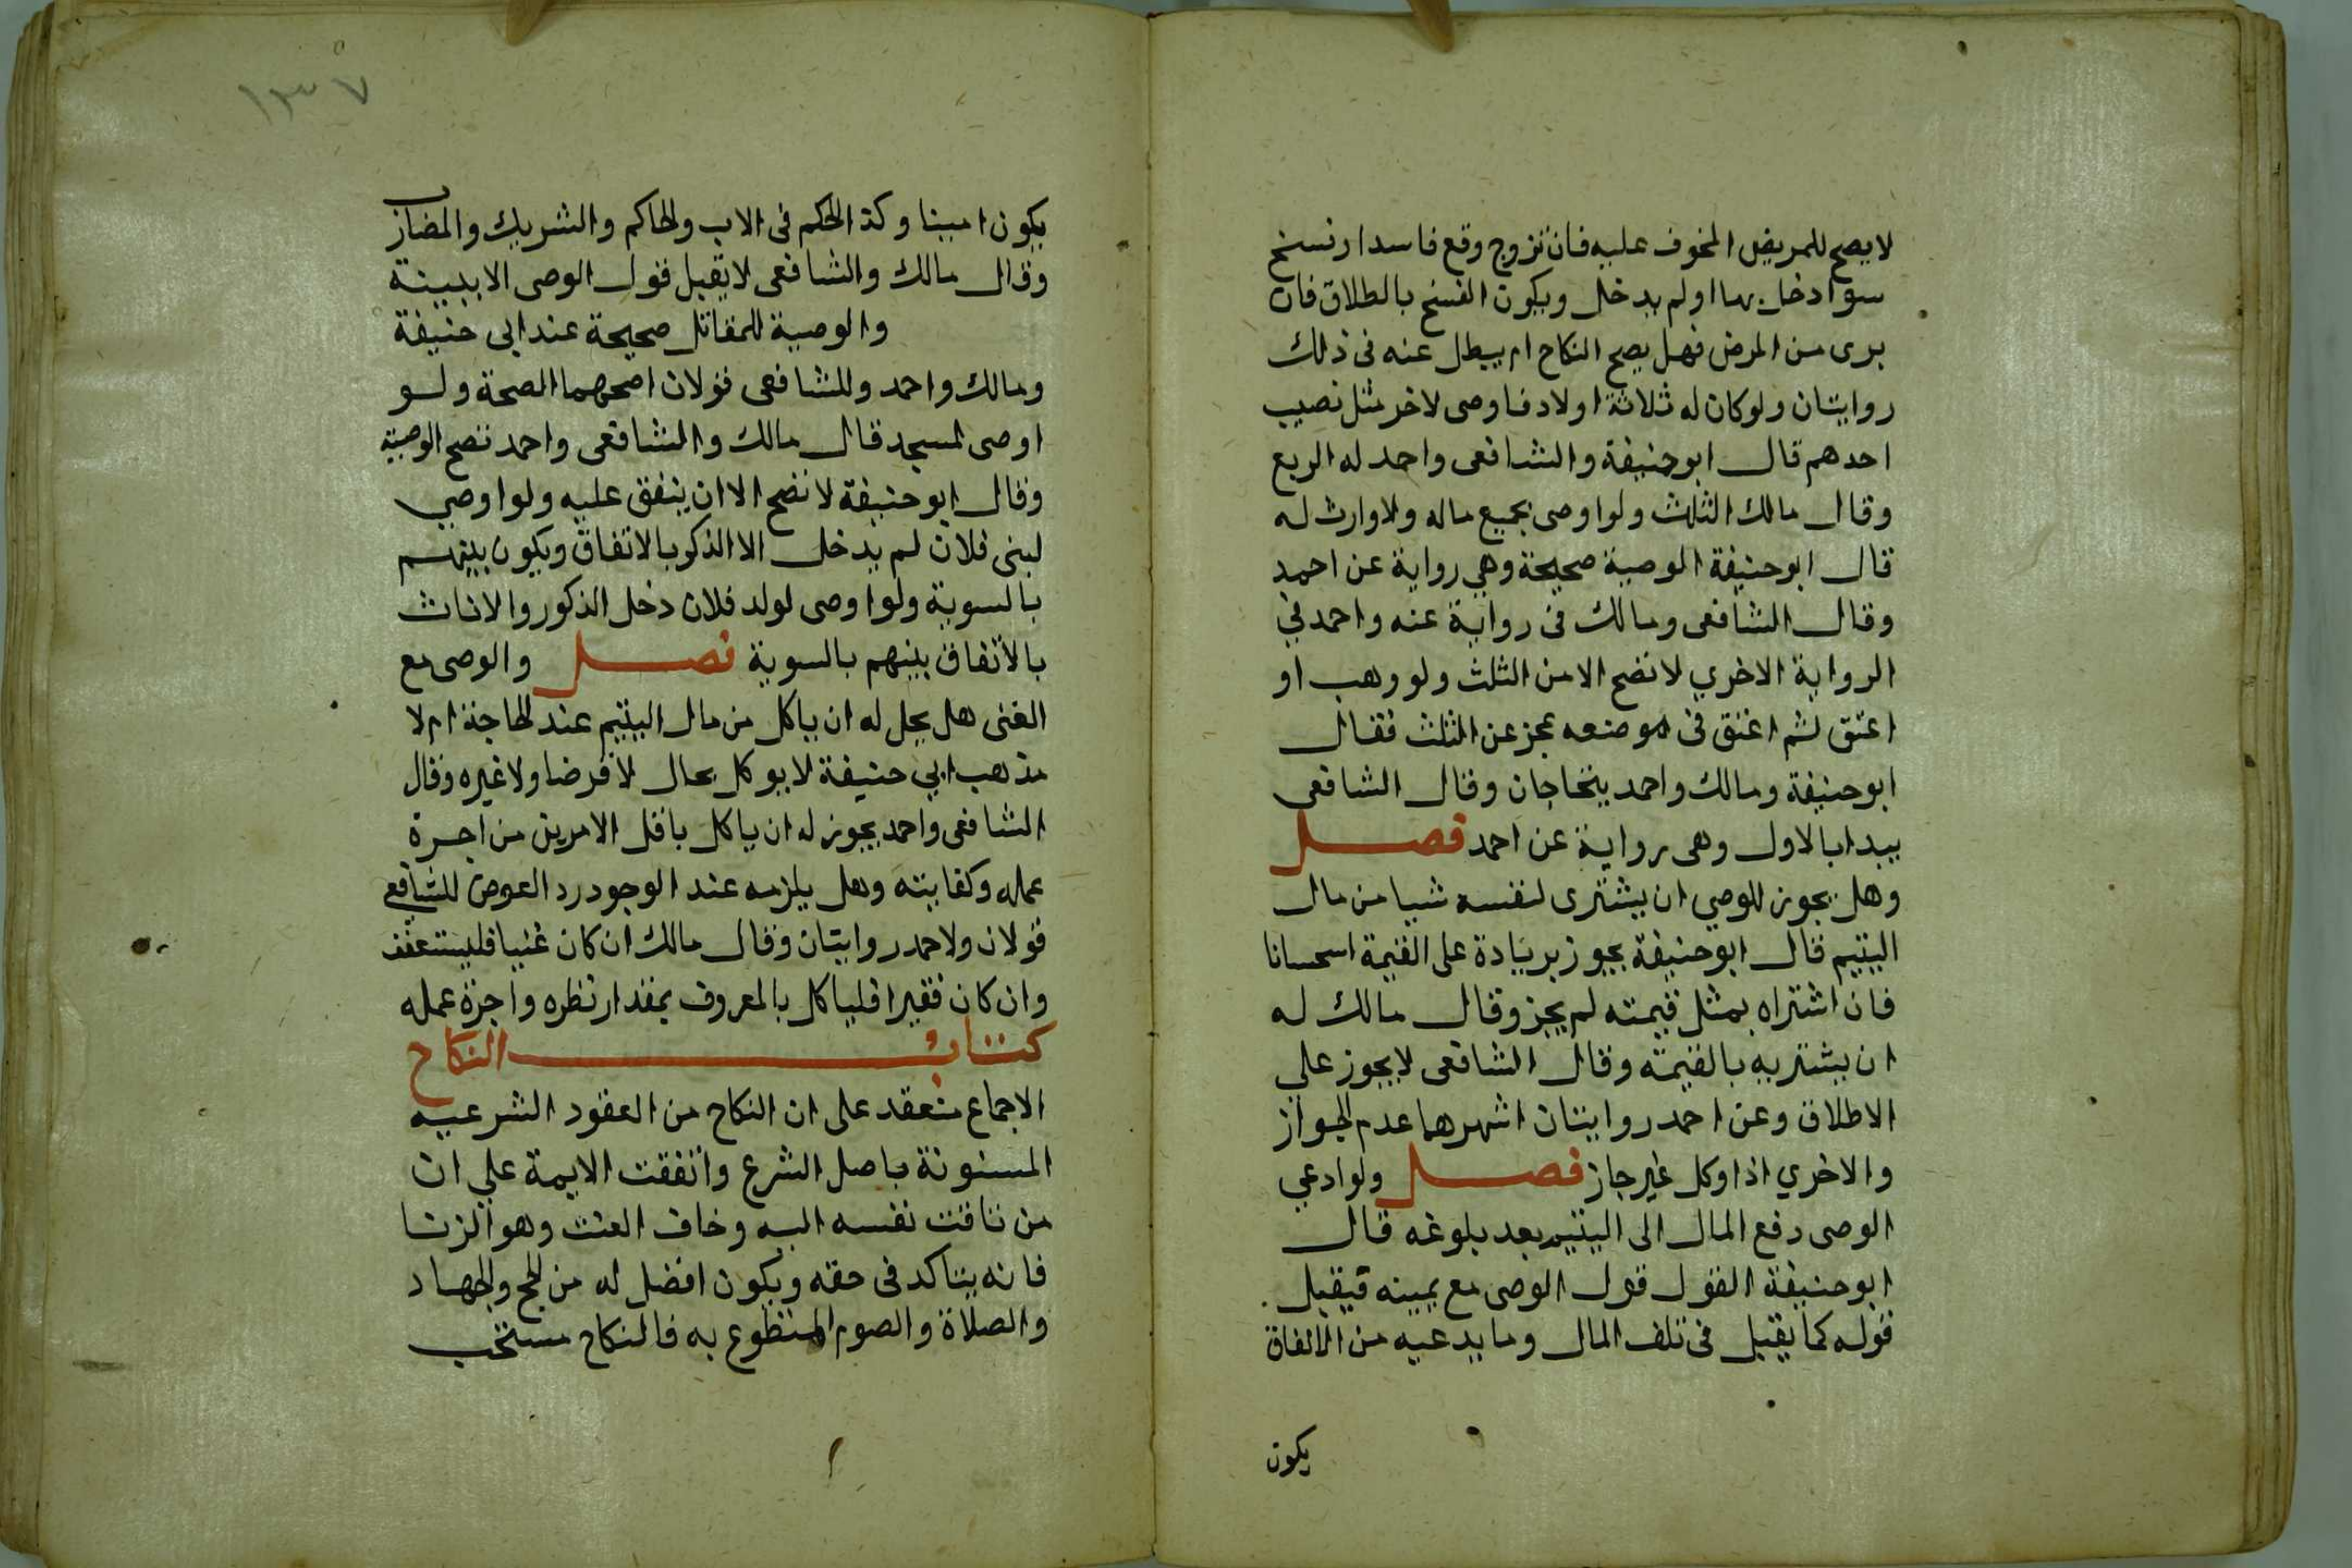 لا يصح للمريض المخوف عليه فان تزوج وقع فاسدا ونسخ
سوا دخل بها او لم يدخل ويكون الفسخ بالطلاق فان
برى من المرض فهل يصح النكاح ام يبطل عنه فى ذلك
روايتان ولو كان له ثلاثة اولاد فاوصى لاخر مثل نصيب
احدهم قال ابو حنيفة والشافعى واحد له الربع
وقال مالك الثلث ولو اوصى بجميع ماله ولا وارث له
قال ابو حنيفة الوصية صحيحة وهي رواية عن احمد
وقال الشافعى ومالك فى رواية عنه واحمد في
الرواية الاخري لا تصح الا من الثلث ولو وهب او
اعتق ثم اعتق فى موضعه عجز عن الثلث فقال
ابو حنيفة ومالك واحمد يتحاجان وقال الشافعى
يبدا بالاول وهى رواية عن احمد فصل
وهل يجوز للوصي ان يشترى لنفسه شيا من مال
اليتيم قال ابو حنيفة يجوز بزيادة على القيمة اسحسانا
فان اشتراه بمثل قيمته لم يجز وقال مالك له
ان يشتريه بالقيمة وقال الشافعى لا يجوز علي
الاطلاق وعن احمد روايتان اشهرهما عدم الجواز
والاخري اذا وكل غير جاز فصل ولو ادعي
الوصى دفع المال الى اليتيم بعد بلوغه قال
ابو حنيفة القول قول الوصى مع يمينه فيقبل
قوله كما يقبل فى تلف المال وما يدعيه من الانفاق
يكون
١٣٧
يكون امينا وكذا الحكم فى الاب والحاكم والشريك والمضارب
وقال مالك والشافعى لا يقبل قول الوصى الا ببينة
والوصية للمقاتل صحيحة عند ابى حنيفة
ومالك واحمد وللشافعى قولان اصحهما الصحة ولو
اوصى لمسجد قال مالك والشافعى واحمد تصح الوصية
وقال ابو حنيفة لا تصح الا ان ينفق عليه ولو اوصي
لبنى فلان لم يدخل الا الذكور بالاتفاق ويكون بينهم
بالسوية ولو اوصى لولد فلان دخل الذكور والاناث
بالاتفاق بينهم بالسوية فصل والوصى مع
الغنى هل يحل له ان ياكل من مال اليتيم عند الحاجة ام لا
مذهب ابي حنيفة لا يوكل بحال لا قرضا ولا غيره وقال
الشافعى واحمد يجوز له ان ياكل باقل الامرين من اجرة
عمله وكفايته وهل يلزمه عند الوجود رد العوض للشافعي
قولان ولاحمد روايتان وقال مالك ان كان غنيا فليستعفف
وان كان فقيرا فلياكل بالمعروف بمقدار نظره واجرة عمله
كتاب النكاح
الاجماع منعقد على ان النكاح من العقود الشرعيه
المسنونة باصل الشرع واتفقت الايمة علي ان
من تاقت نفسه اليه وخاف العنت وهو الزنا
فانه يتاكد فى حقه ويكون افضل له من الحج والجهاد
والصلاة والصوم المتطوع به فالنكاح مستحب